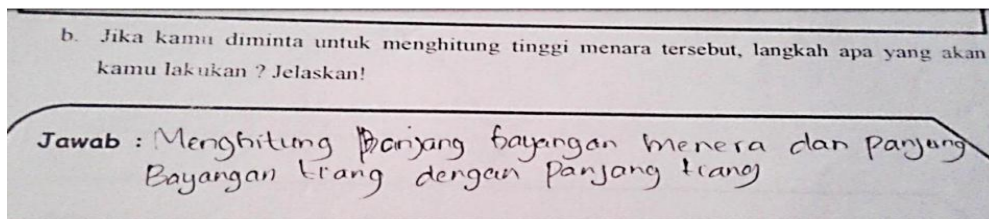 b. Jika kamu diminta untuk menghitung tinggi menara tersebut, langkah apa yang akan
kamu lakukan ? Jelaskan!
Jawab : Menghitung Panjang bayangan menera dan panjang
Bayangan trang dengan Panjang trang